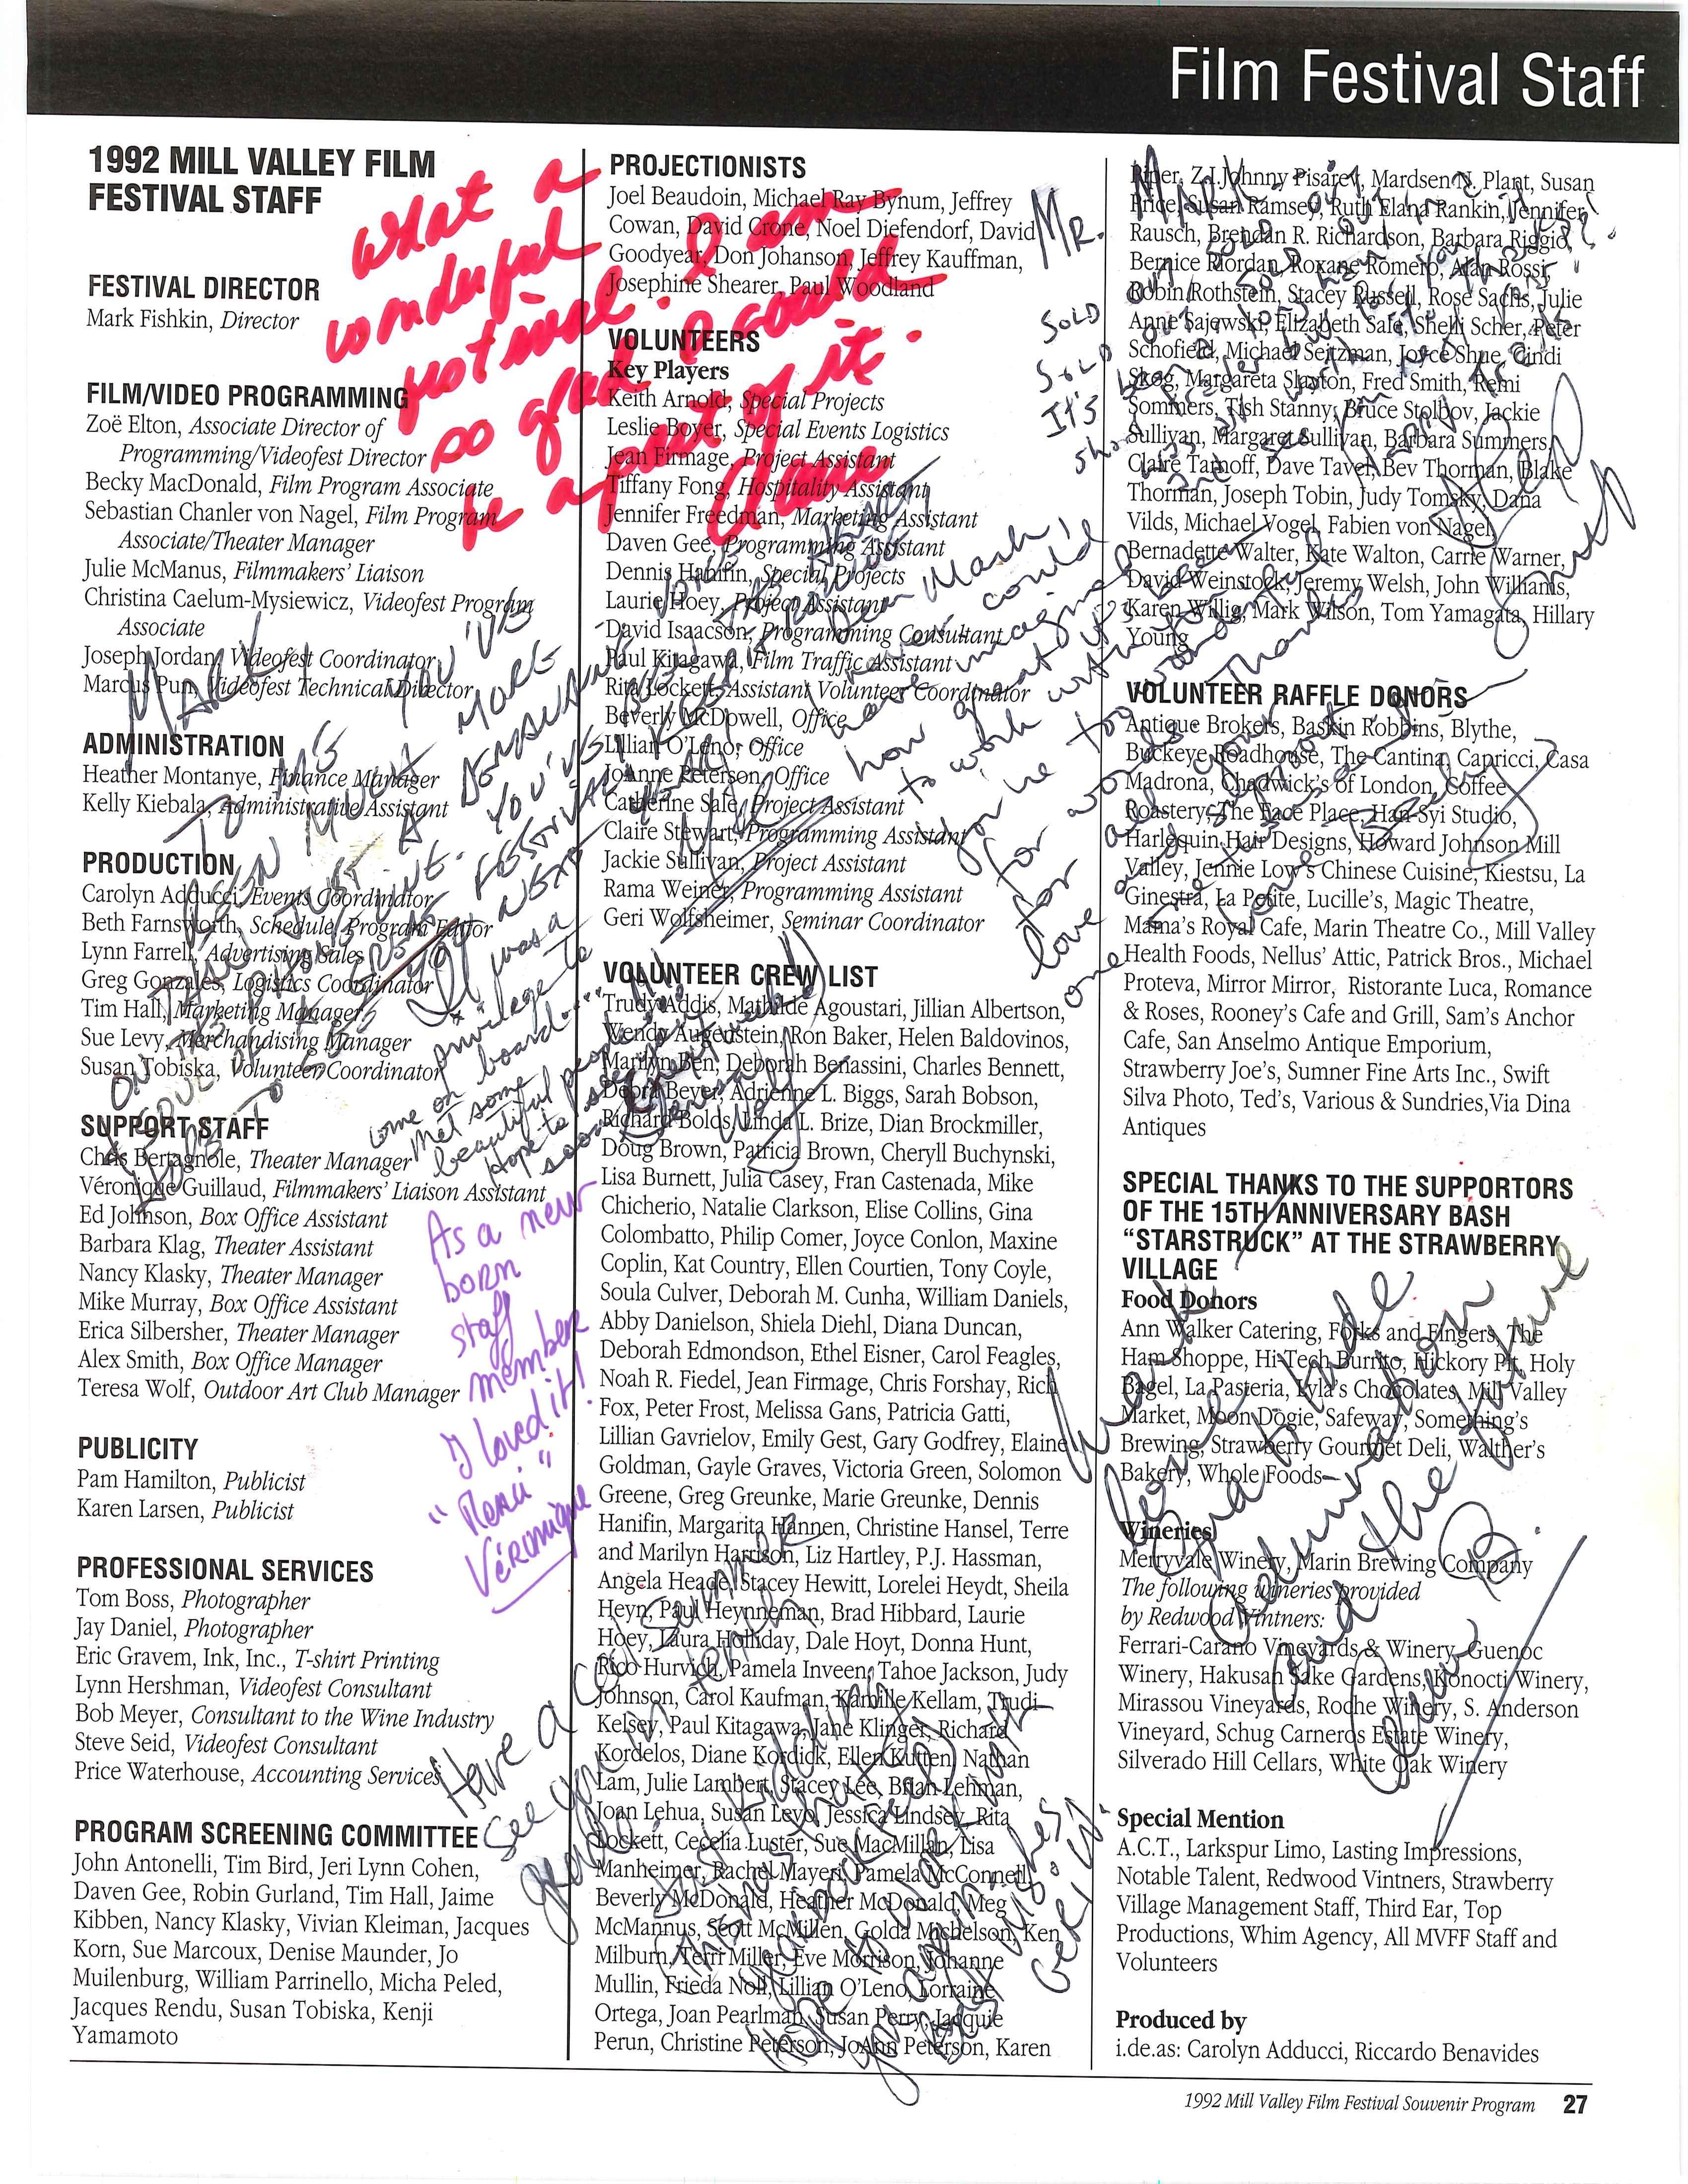 Film Festival Staff
1992 MILL VALLEY FILM
FESTIVAL STAFF
FESTIVAL DIRECTOR
Mark Fishkin, Director
FILM/VIDEO PROGRAMMING
Zoë Elton, Associate Director of
Programming/Videofest Director
Becky MacDonald, Film Program Associate
Sebastian Chanler von Nagel, Film Program
Associate/Theater Manager
Julie McManus, Filmmakers' Liaison
Christina Caelum-Mysiewicz, Videofest Program
Associate
Joseph Jordan, Videofest Coordinator
Marcus Pun, Videofest Technical Director
ADMINISTRATION
Heather Montanye, Finance Manager
Kelly Kiebala, Administrative Assistant
PRODUCTION
Carolyn Adducci, Events Coordinator
Beth Farnsworth, Schedule/Program Editor
Lynn Farrell, Advertising Sales
Greg Gonzales, Logistics Coordinator
Tim Hall, Marketing Manager
Sue Levy, Merchandising Manager
Susan Tobiska, Volunteer Coordinator
SUPPORT STAFF
Chris Bertagnole, Theater Manager
Véronique Guillaud, Filmmakers' Liaison Assistant
Ed Johnson, Box Office Assistant
Barbara Klag, Theater Assistant
Nancy Klasky, Theater Manager
Mike Murray, Box Office Assistant
Erica Silbersher, Theater Manager
Alex Smith, Box Office Manager
Teresa Wolf, Outdoor Art Club Manager
PUBLICITY
Pam Hamilton, Publicist
Karen Larsen, Publicist
PROFESSIONAL SERVICES
Tom Boss, Photographer
Jay Daniel, Photographer
Eric Gravem, Ink, Inc., T-shirt Printing
Lynn Hershman, Videofest Consultant
Bob Meyer, Consultant to the Wine Industry
Steve Seid, Videofest Consultant
Price Waterhouse, Accounting Services
PROGRAM SCREENING COMMITTEE
John Antonelli, Tim Bird, Jeri Lynn Cohen,
Daven Gee, Robin Gurland, Tim Hall, Jaime
Kibben, Nancy Klasky, Vivian Kleiman, Jacques
Korn, Sue Marcoux, Denise Maunder, Jo
Muilenburg, William Parrinello, Micha Peled,
Jacques Rendu, Susan Tobiska, Kenji
Yamamoto
PROJECTIONISTS
Joel Beaudoin, Michael Ray Bynum, Jeffrey
Cowan, David Crone, Noel Diefendorf, David
Goodyear, Don Johanson, Jeffrey Kauffman,
Josephine Shearer, Paul Woodland
VOLUNTEERS
Key Players
Keith Arnold, Special Projects
Leslie Boyer, Special Events Logistics
Jean Firmage, Project Assistant
Tiffany Fong, Hospitality Assistant
Jennifer Freedman, Marketing Assistant
Daven Gee, Programming Assistant
Dennis Hanifin, Special Projects
Laurie Hoey, Project Assistant
David Isaacson, Programming Consultant
Paul Kitagawa, Film Traffic Assistant
Rita Lockett, Assistant Volunteer Coordinator
Beverly McDowell, Office
Lillian O'Leno, Office
JoAnne Peterson, Office
Catherine Sale, Project Assistant
Claire Stewart, Programming Assistant
Jackie Sullivan, Project Assistant
Rama Weiner, Programming Assistant
Geri Wolfsheimer, Seminar Coordinator
VOLUNTEER CREW LIST
Trudy Addis, Mathilde Agoustari, Jillian Albertson,
Wendy Augenstein, Ron Baker, Helen Baldovinos,
Marilyn Ben, Deborah Benassini, Charles Bennett,
Debra Beyer, Adrienne L. Biggs, Sarah Bobson,
Richard Bolds, Linda L. Brize, Dian Brockmiller,
Doug Brown, Patricia Brown, Cheryll Buchynski,
Lisa Burnett, Julia Casey, Fran Castenada, Mike
Chicherio, Natalie Clarkson, Elise Collins, Gina
Colombatto, Philip Comer, Joyce Conlon, Maxine
Coplin, Kat Country, Ellen Courtien, Tony Coyle,
Soula Culver, Deborah M. Cunha, William Daniels,
Abby Danielson, Shiela Diehl, Diana Duncan,
Deborah Edmondson, Ethel Eisner, Carol Feagles,
Noah R. Fiedel, Jean Firmage, Chris Forshay, Rich
Fox, Peter Frost, Melissa Gans, Patricia Gatti,
Lillian Gavrielov, Emily Gest, Gary Godfrey, Elaine
Goldman, Gayle Graves, Victoria Green, Solomon
Greene, Greg Greunke, Marie Greunke, Dennis
Hanifin, Margarita Hannen, Christine Hansel, Terre
and Marilyn Harrison, Liz Hartley, P.J. Hassman,
Angela Heade, Stacey Hewitt, Lorelei Heydt, Sheila
Heyn, Paul Heynneman, Brad Hibbard, Laurie
Hoey, Laura Holliday, Dale Hoyt, Donna Hunt,
Rico Hurvich, Pamela Inveen, Tahoe Jackson, Judy
Johnson, Carol Kaufman, Kamille Kellam, Trudi
Kelsey, Paul Kitagawa, Jane Klinger, Richard
Kordelos, Diane Kordick, Ellen Kutten, Nathan
Lam, Julie Lambert, Stacey Lee, Brian Lehman,
Joan Lehua, Susan Levo, Jessica Lindsey, Rita
Lockett, Cecelia Luster, Sue MacMillan, Lisa
Manheimer, Rachel Mayeri, Pamela McConnell,
Beverly McDonald, Heather McDonald, Meg
McMannus, Scott McMillen, Golda Michelson, Ken
Milburn, Terri Miller, Eve Morrison, Johanne
Mullin, Frieda Noll, Lillian O'Leno, Lorraine
Ortega, Joan Pearlman, Susan Perry, Jacquie
Perun, Christine Peterson, JoAnn Peterson, Karen
Piper, Z.J. Johnny Pisarev, Mardsen N. Plant, Susan
Price, Susan Ramsey, Ruth Elana Rankin, Jennifer
Rausch, Brendan R. Richardson, Barbara Riggio,
Bernice Riordan, Roxane Romero, Alan Rossi,
Robin Rothstein, Stacey Russell, Rose Sachs, Julie
Anne Sajewski, Elizabeth Sale, Shelli Scher, Peter
Schofield, Michael Seitzman, Joyce Shue, Cindi
Skog, Margareta Slayton, Fred Smith, Remi
Sommers, Tish Stanny, Bruce Stolbov, Jackie
Sullivan, Margaret Sullivan, Barbara Summers,
Claire Tarnoff, Dave Tavel, Bev Thorman, Blake
Thorman, Joseph Tobin, Judy Tomsky, Dana
Vilds, Michael Vogel, Fabien von Nagel,
Bernadette Walter, Kate Walton, Carrie Warner,
David Weinstock, Jeremy Welsh, John Williams,
Karen Willig, Mark Wilson, Tom Yamagata, Hillary
Young
VOLUNTEER RAFFLE DONORS
Antique Brokers, Baskin Robbins, Blythe,
Buckeye Roadhouse, The Cantina, Capricci, Casa
Madrona, Chadwick's of London, Coffee
Roastery, The Face Place, Han-Syi Studio,
Harlequin Hair Designs, Howard Johnson Mill
Valley, Jennie Low's Chinese Cuisine, Kiestsu, La
Ginestra, La Petite, Lucille's, Magic Theatre,
Mama's Royal Cafe, Marin Theatre Co., Mill Valley
Health Foods, Nellus' Attic, Patrick Bros., Michael
Proteva, Mirror Mirror, Ristorante Luca, Romance
& Roses, Rooney's Cafe and Grill, Sam's Anchor
Cafe, San Anselmo Antique Emporium,
Strawberry Joe's, Sumner Fine Arts Inc., Swift
Silva Photo, Ted's, Various & Sundries,Via Dina
Antiques
SPECIAL THANKS TO THE SUPPORTORS
OF THE 15TH ANNIVERSARY BASH
"STARSTRUCK" AT THE STRAWBERRY
VILLAGE
Food Donors
Ann Walker Catering, Forks and Fingers, The
Ham Shoppe, Hi-Tech Burrito, Hickory Pit, Holy
Bagel, La Pasteria, Lyla's Chocolates, Mill Valley
Market, Moon Dogie, Safeway, Something's
Brewing, Strawberry Gourmet Deli, Walther's
Bakery, Whole Foods
Wineries
Merryvale Winery, Marin Brewing Company
The following wineries provided
by Redwood Vintners:
Ferrari-Carano Vineyards & Winery, Guenoc
Winery, Hakusan Sake Gardens, Konocti Winery,
Mirassou Vineyards, Roche Winery, S. Anderson
Vineyard, Schug Carneros Estate Winery,
Silverado Hill Cellars, White Oak Winery
Special Mention
A.C.T., Larkspur Limo, Lasting Impressions,
Notable Talent, Redwood Vintners, Strawberry
Village Management Staff, Third Ear, Top
Productions, Whim Agency, All MVFF Staff and
Volunteers
Produced by
i.de.as: Carolyn Adducci, Riccardo Benavides
1992 Mill Valley Film Festival Souvenir Program 27
What a
wonderful
festival. I am
so glad I could
be a part of it.
Claire
MARK
TO ME YOU'VE
BEEN MUCH MORE
THAN JUST A
It was a
privilege to
come on board....
Met some
beautiful people
Hope to see
soon
As a new
born
staff
member
I loved it!
"Merci"
Véronique
Dear Mark
have never could
how great
to work with
you're too wonderful
for words. Thanks
for all your
love and support
one
Love
Becky
MR. MARK-
SOLD out
SOLD out
It's been a
Mark
Love
and
admiration
and the future
Have a cool summer
See you in tenth
grade.
Just Kidding
This is
your yearbook
Hope to
you again
Best wishes